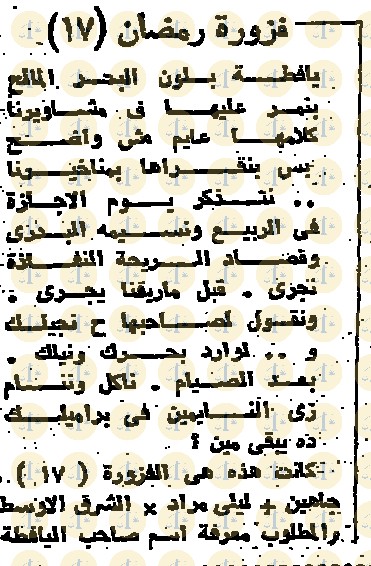 فزورة رمضان (١٧)
يافطـــة بــلون البحــر المالح
بنمـــر عليهـــا فى مشـــاويرنا
كلامهـــا عايم مش واضـــح
بس بنقـــراها بمناخيـــرنا
.. نتـــذكر يـــوم الاجـــازة
فى الربيع ونســـيمه البـــدرى
وقصـــاد الـــريحة النفـــاذة
تجرى . قبل ماريقنا يجـــرى .
ونقـــول لصـــاحبها ح نجيلـــك
و .. نوارد بحـــرك ونيلك .
بعـــد الصـــيام . ناكل وننـــام
زى النـــايمين فى براميلـــك
ده يبقى مين ؟
كانت هذه هى الفزورة ( ١٧ ) .
جاهين + ليلى مراد × الشرق الاوسط
والمطلوب معرفة اسم صاحب اليافطة